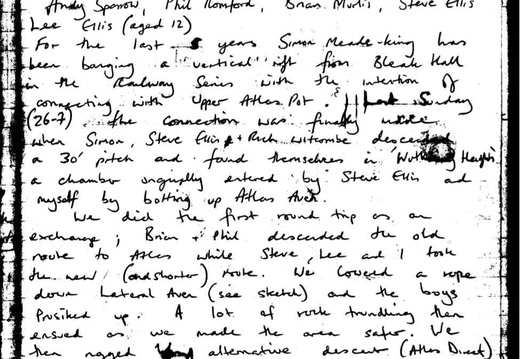 Andy Sparrow, Phil Romford, Brian Murlis, Steve Ellis
Lee Ellis (aged 12)
For the last 5 years Simon Meade-King has
been banging a vertical rift from Bleak Hall
in the Railway Series with the intention of
connecting with Upper Atlas Pot. Last Sunday
(26-7) the connection was finally made
when Simon, Steve Ellis, + Rich Witcombe descended
a 30' pitch and found themselves in 'Wuthering Heights'
a chamber originally entered by Steve Ellis and
myself by bolting up Atlas Aven.
We did the first round trip as an
exchange; Brian + Phil descended the old
route to Atlas while Steve, Lee and I took
the new (and shorter) route. We lowered a rope
down Lateral Aven (see sketch) and the boys
Prusiked up. A lot of rock trundling then
ensued as we made the area safe. We
then rigged alternative descent (Atlas Direct)